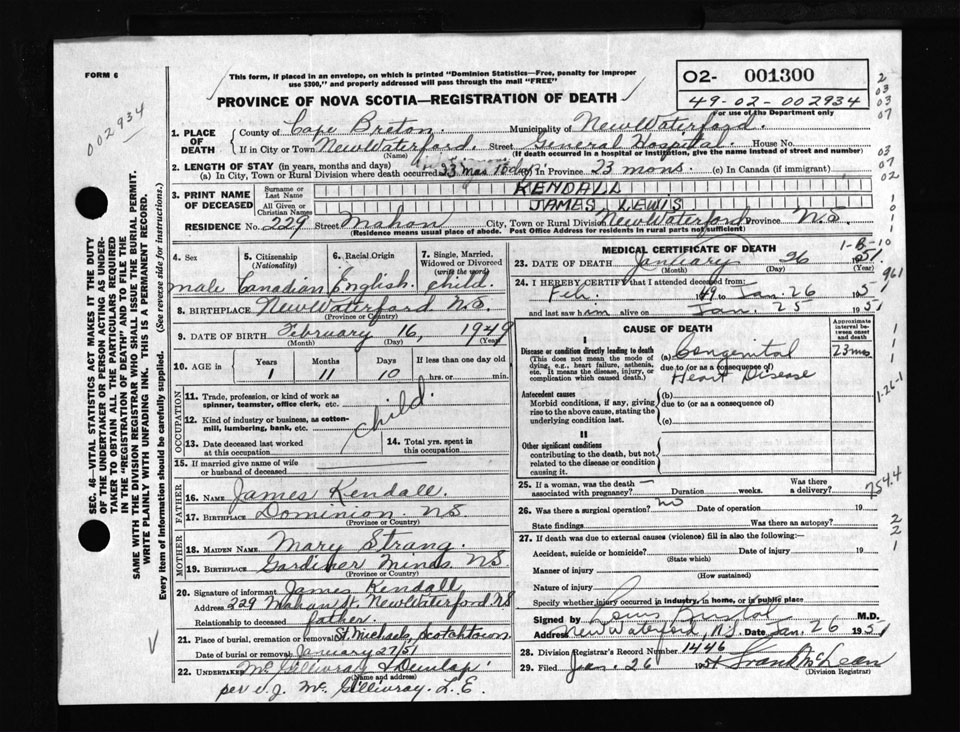 FORM 6
This form, if placed in an envelope, on which is printed "Dominion Statistics—Free, penalty for improper
use $300," and properly addressed will pass through the mail "FREE"
O2- 001300
49-02-002934
For use of the Department only
002934
PROVINCE OF NOVA SCOTIA—REGISTRATION OF DEATH
1. PLACE OF DEATH
County of Cape Breton. Municipality of New Waterford.
If in City or Town New Waterford. Street General Hospital. House No.
(Name) (If death occurred in a hospital or institution, give the name instead of street and number)
2. LENGTH OF STAY (in years, months and days)
(a) In City, Town or Rural Division where death occurred 23 mos 10 days. (b) In Province 23 mons. (c) In Canada (if immigrant)
3. PRINT NAME OF DECEASED
Surname or Last Name KENDALL
All Given or Christian Names JAMES LEWIS
RESIDENCE No. 229 Street Mahon City, Town or Rural Division New Waterford Province N.S.
(Residence means usual place of abode. Post Office Address for residents in rural parts not sufficient)
4. Sex male
5. Citizenship (Nationality) Canadian
6. Racial Origin English.
7. Single, Married, Widowed or Divorced (write the word) child.
8. BIRTHPLACE New Waterford N.S.
(Province or Country)
9. DATE OF BIRTH February 16, 1949
(Month) (Day) (Year)
10. AGE in Years Months Days If less than one day old
1 11 10 hrs. or min.
OCCUPATION
11. Trade, profession, or kind of work as
spinner, teamster, office clerk, etc.
12. Kind of industry or business, as cotton-
mill, lumbering, bank, etc.
child.
13. Date deceased last worked
at this occupation
14. Total yrs. spent in
this occupation
15. If married give name of wife
or husband of deceased
FATHER
16. NAME James Kendall.
17. BIRTHPLACE Dominion. N.S.
(Province or Country)
MOTHER
18. MAIDEN NAME Mary Strang.
19. BIRTHPLACE Gardiner Mines N.S.
(Province or Country)
20. Signature of informant James Kendall
Address 229 Mahon St. New Waterford N.S.
Relationship to deceased father.
21. Place of burial, cremation or removal St Michaels, Scotchtown
Date of burial or removal January 27/51
22. UNDERTAKER McGillivray & Dunlap
(Name and address)
per J. McGillivray. L.E.
MEDICAL CERTIFICATE OF DEATH
23. DATE OF DEATH January 26 1951
(Month) (Day) (Year)
24. I HEREBY CERTIFY that I attended deceased from:
Feb. 1949 to Jan. 26 1951
and last saw him alive on Jan. 25 1951
CAUSE OF DEATH
Approximate interval between onset and death
I
Disease or condition directly leading to death
(This does not mean the mode of
dying, e.g., heart failure, asthenia,
etc. It means the disease, injury, or
complication which caused death.)
(a) Congenital 23 mos
due to (or as a consequence of)
Heart Disease
Antecedent causes
Morbid conditions, if any, giving
rise to the above cause, stating the
underlying condition last.
(b)
due to (or as a consequence of)
(c)
II
Other significant conditions
contributing to the death, but not
related to the disease or condition
causing it.
25. If a woman, was the death
associated with pregnancy? — Duration weeks. Was there a delivery?
26. Was there a surgical operation? no Date of operation 19
State findings Was there an autopsy?
27. If death was due to external causes (violence) fill in also the following:—
Accident, suicide or homicide? Date of injury 19
(State which)
Manner of injury
(How sustained)
Nature of injury
Specify whether injury occurred in industry, in home, or in public place
Signed by M.D.
Address New Waterford, N.S. Date Jan. 26 1951
28. Division Registrar's Record Number 1446
29. Filed Jan. 26 1951 Frank McLean
(Division Registrar)
SEC. 46—VITAL STATISTICS ACT MAKES IT THE DUTY
OF THE UNDERTAKER OR PERSON ACTING AS UNDER-
TAKER TO OBTAIN ALL THE PARTICULARS REQUIRED
IN THE "REGISTRATION OF DEATH" AND TO FILE THE
SAME WITH THE DIVISION REGISTRAR WHO SHALL ISSUE THE BURIAL PERMIT.
WRITE PLAINLY WITH UNFADING INK. THIS IS A PERMANENT RECORD.
Every item of information should be carefully supplied. (See reverse side for instructions.)
2
03
03
07
03
07
02
1-B-10
961
1-26-1
754.4
2
2
1